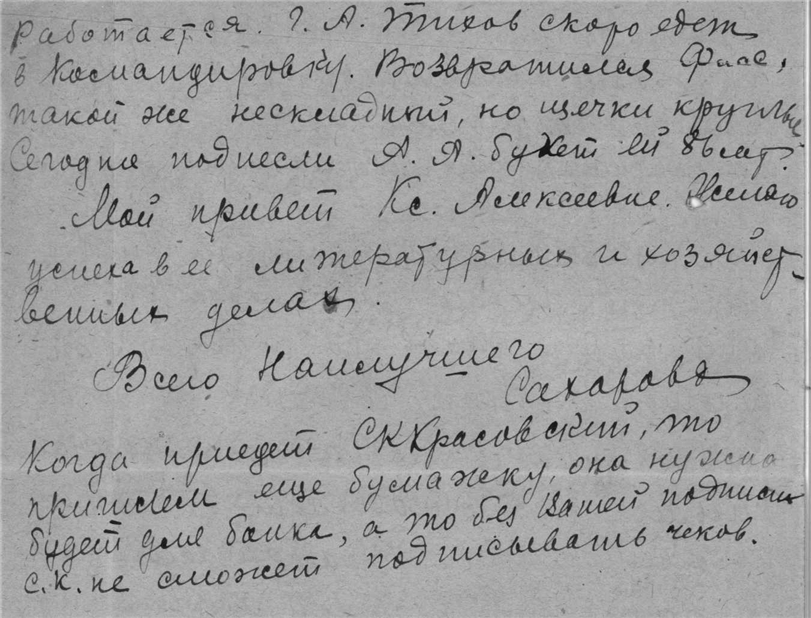 работается. Г. А. Тихов скоро едет
в Командировку. Возвратился Фасс,
такой же нескладный, но щечки круглые
Сегодня поднесли А. Я. букет ей
Мой привет Кс. Алексеевне. Желаю
успеха в ее литературных и хозяйст-
венных делах.
Всего Наилучшего
Сахарова
Когда приедет С К Красовский, то
пришлем еще бумажку, она нужна
будет для банка, а то без Вашей подписи
С.К. не сможет подписывать чеков.